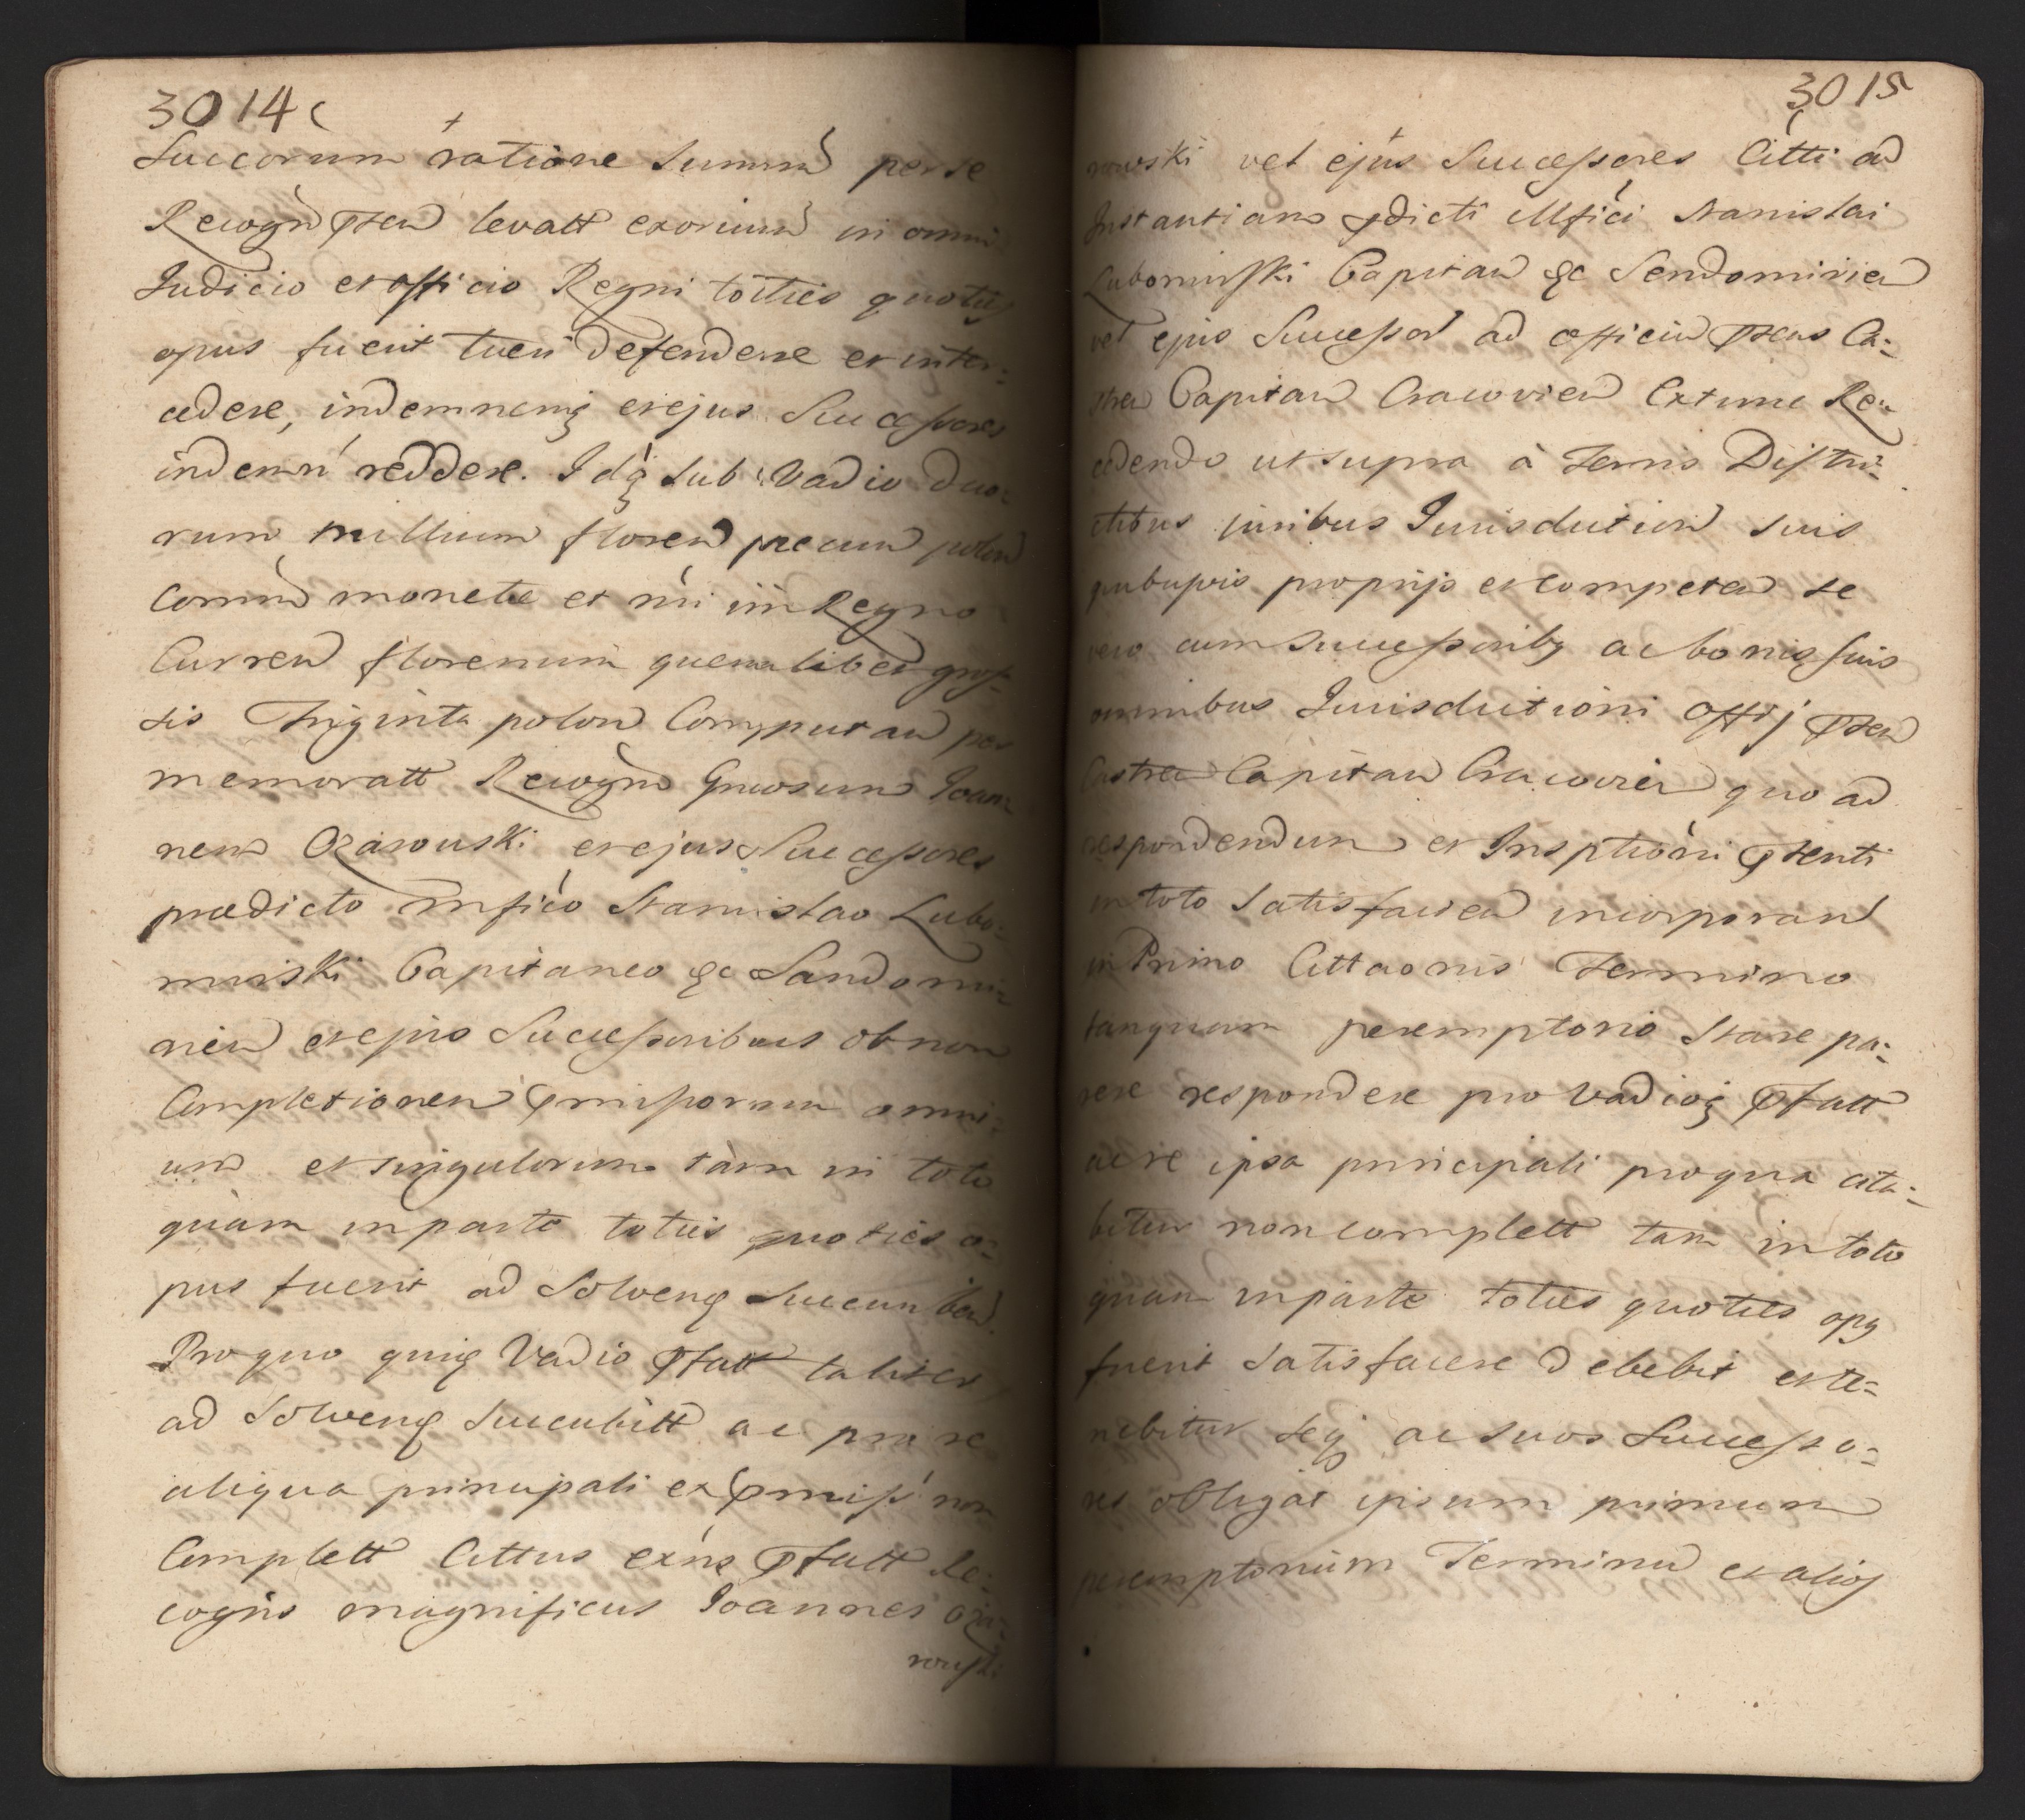 3014
Succorum ratione summ per se
Recogn pnten levatt exorium in omni
Judicio et officio Regni toties quoties
opus fuerit tueri defendere et inter:
cedere, indemnemq et ejus Successores
indemn reddere. Idq sub Vadio duo:
rum millium floren pecun polon
Comun monetae et nri in Regno
Curren florenum quemlibet gros:
sis Triginta polon Computan per
memoratt Recogn Gnrosum Joan:
nem Ozarouski et ejus Successores
praedicto Mfico Stanislao Lubo:
mirski Capitaneo &c Sandomi:
rien et ejus Successoribus ob non
Completionem pmissorum omni:
um et singulorum tàm in toto
quàm in parte toties quoties o:
pus fuerit ad Solvenq Succumben
Pro quo quiq Vadio pfatt taliter
ad Solvenq Succubitt ac pro re
aliqua principali ex pmiss non
Complett Cittus exns pfatt Re:
cogns magnificus Joannes Oza:
rouski
3015
rowski vel ejus Successores Citti ad
Instantiam pdicti Mfici Stanislai
Lubomirski Capitan &c Sendomirien
vel ejus Successor ad officiu pntns Ca:
stren Capitan Cracovien Extunc Re:
cedendo ut supra à Terris Distri:
ctibus juribus Jurisdiction suis
quibusvis proprijs et competen se
vero cum Successoribq ac bonis suis
omnibus Jurisdictioni Offij pnten
Castren Capitan Cracovien quo ad
respondendum et Insptioni pnti
in toto Satisfacien incorporan
in Primo Cittaonis Termino
tanquam peremptorio Stare pa:
rere respondere pro Vadioq pfatt
ac re ipsa principali pro qua cita:
bitur non complett tam in toto
quam in parte toties quoties opq
fuerit Satisfacere debebit et te:
nebitur seq ac suos Successo:
res obligat ipsum primum
peremptorium Terminu et alios